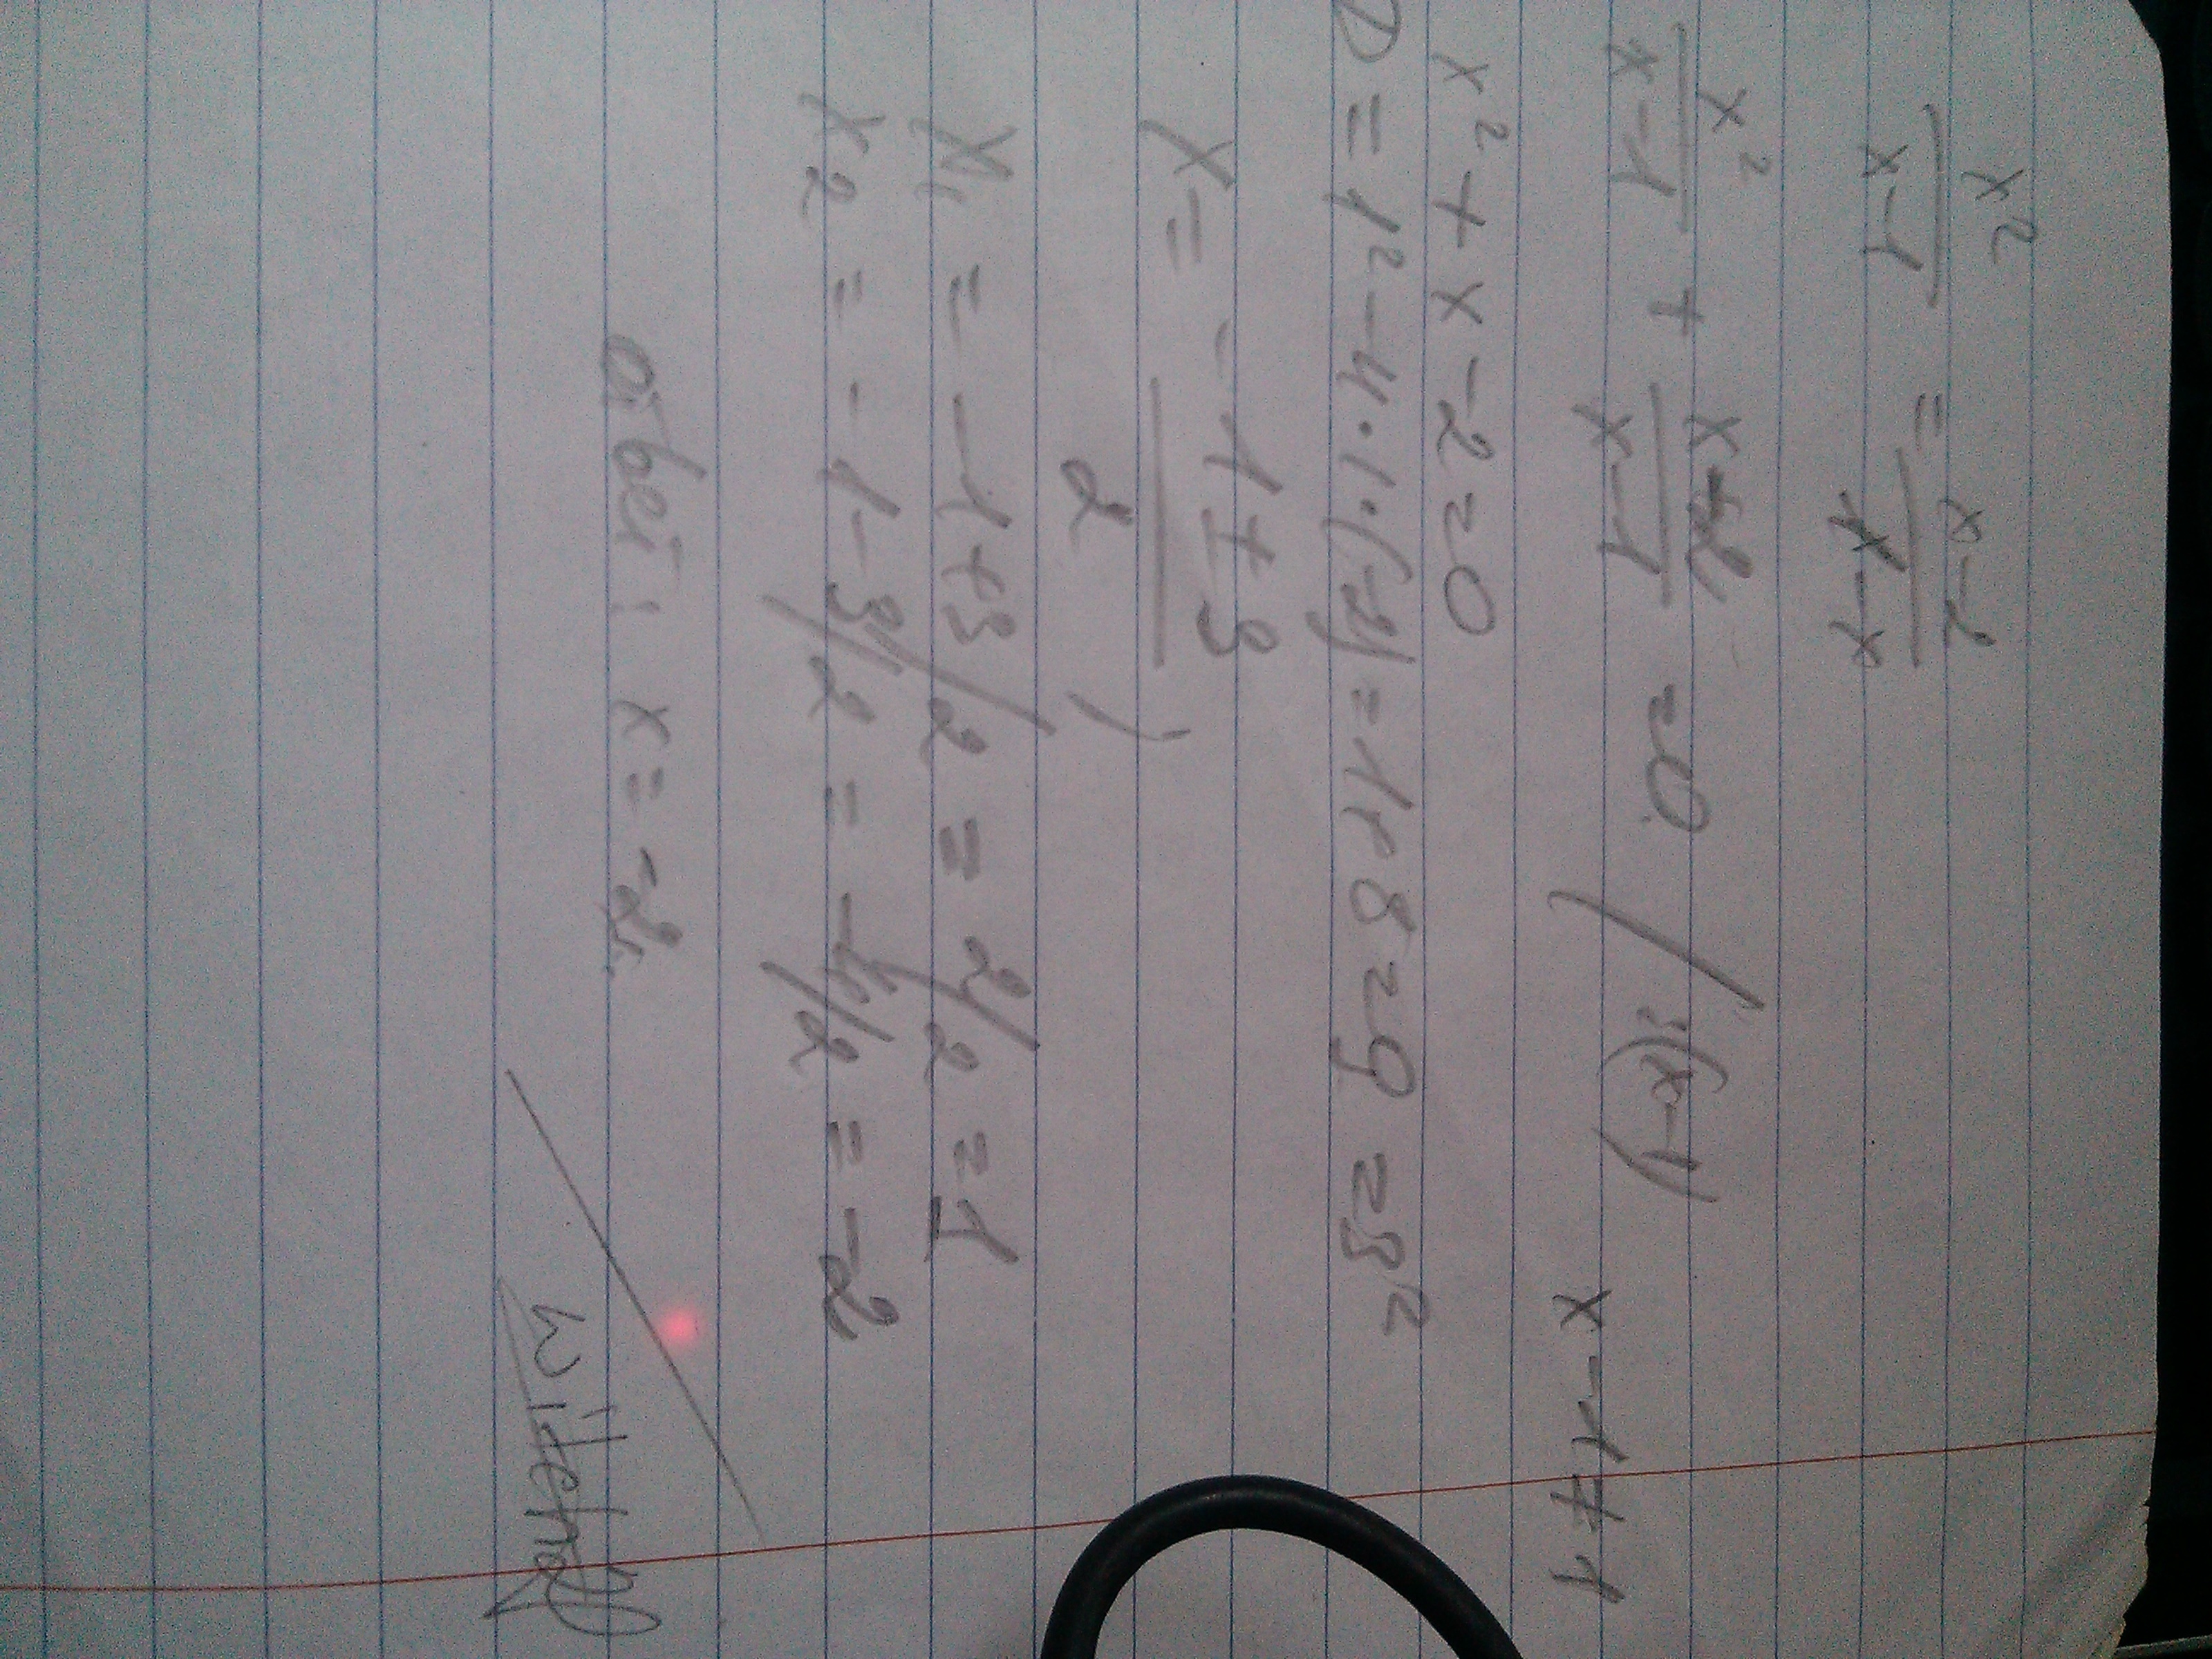 x²/(x-1) = (x-2)/(1-x)
x²/(x-1) + (x-2)/(x-1) = 0. / (x-1) x-1≠1
x² + x - 2 = 0
D = 1² - 4·1·(-2) = 1+8 = 9 = 3²
x = (-1±3)/2 ;
x₁ = -1+3/2 = 2/2 = 1
x₂ = -1-3/2 = -4/2 = -2
x = -2.